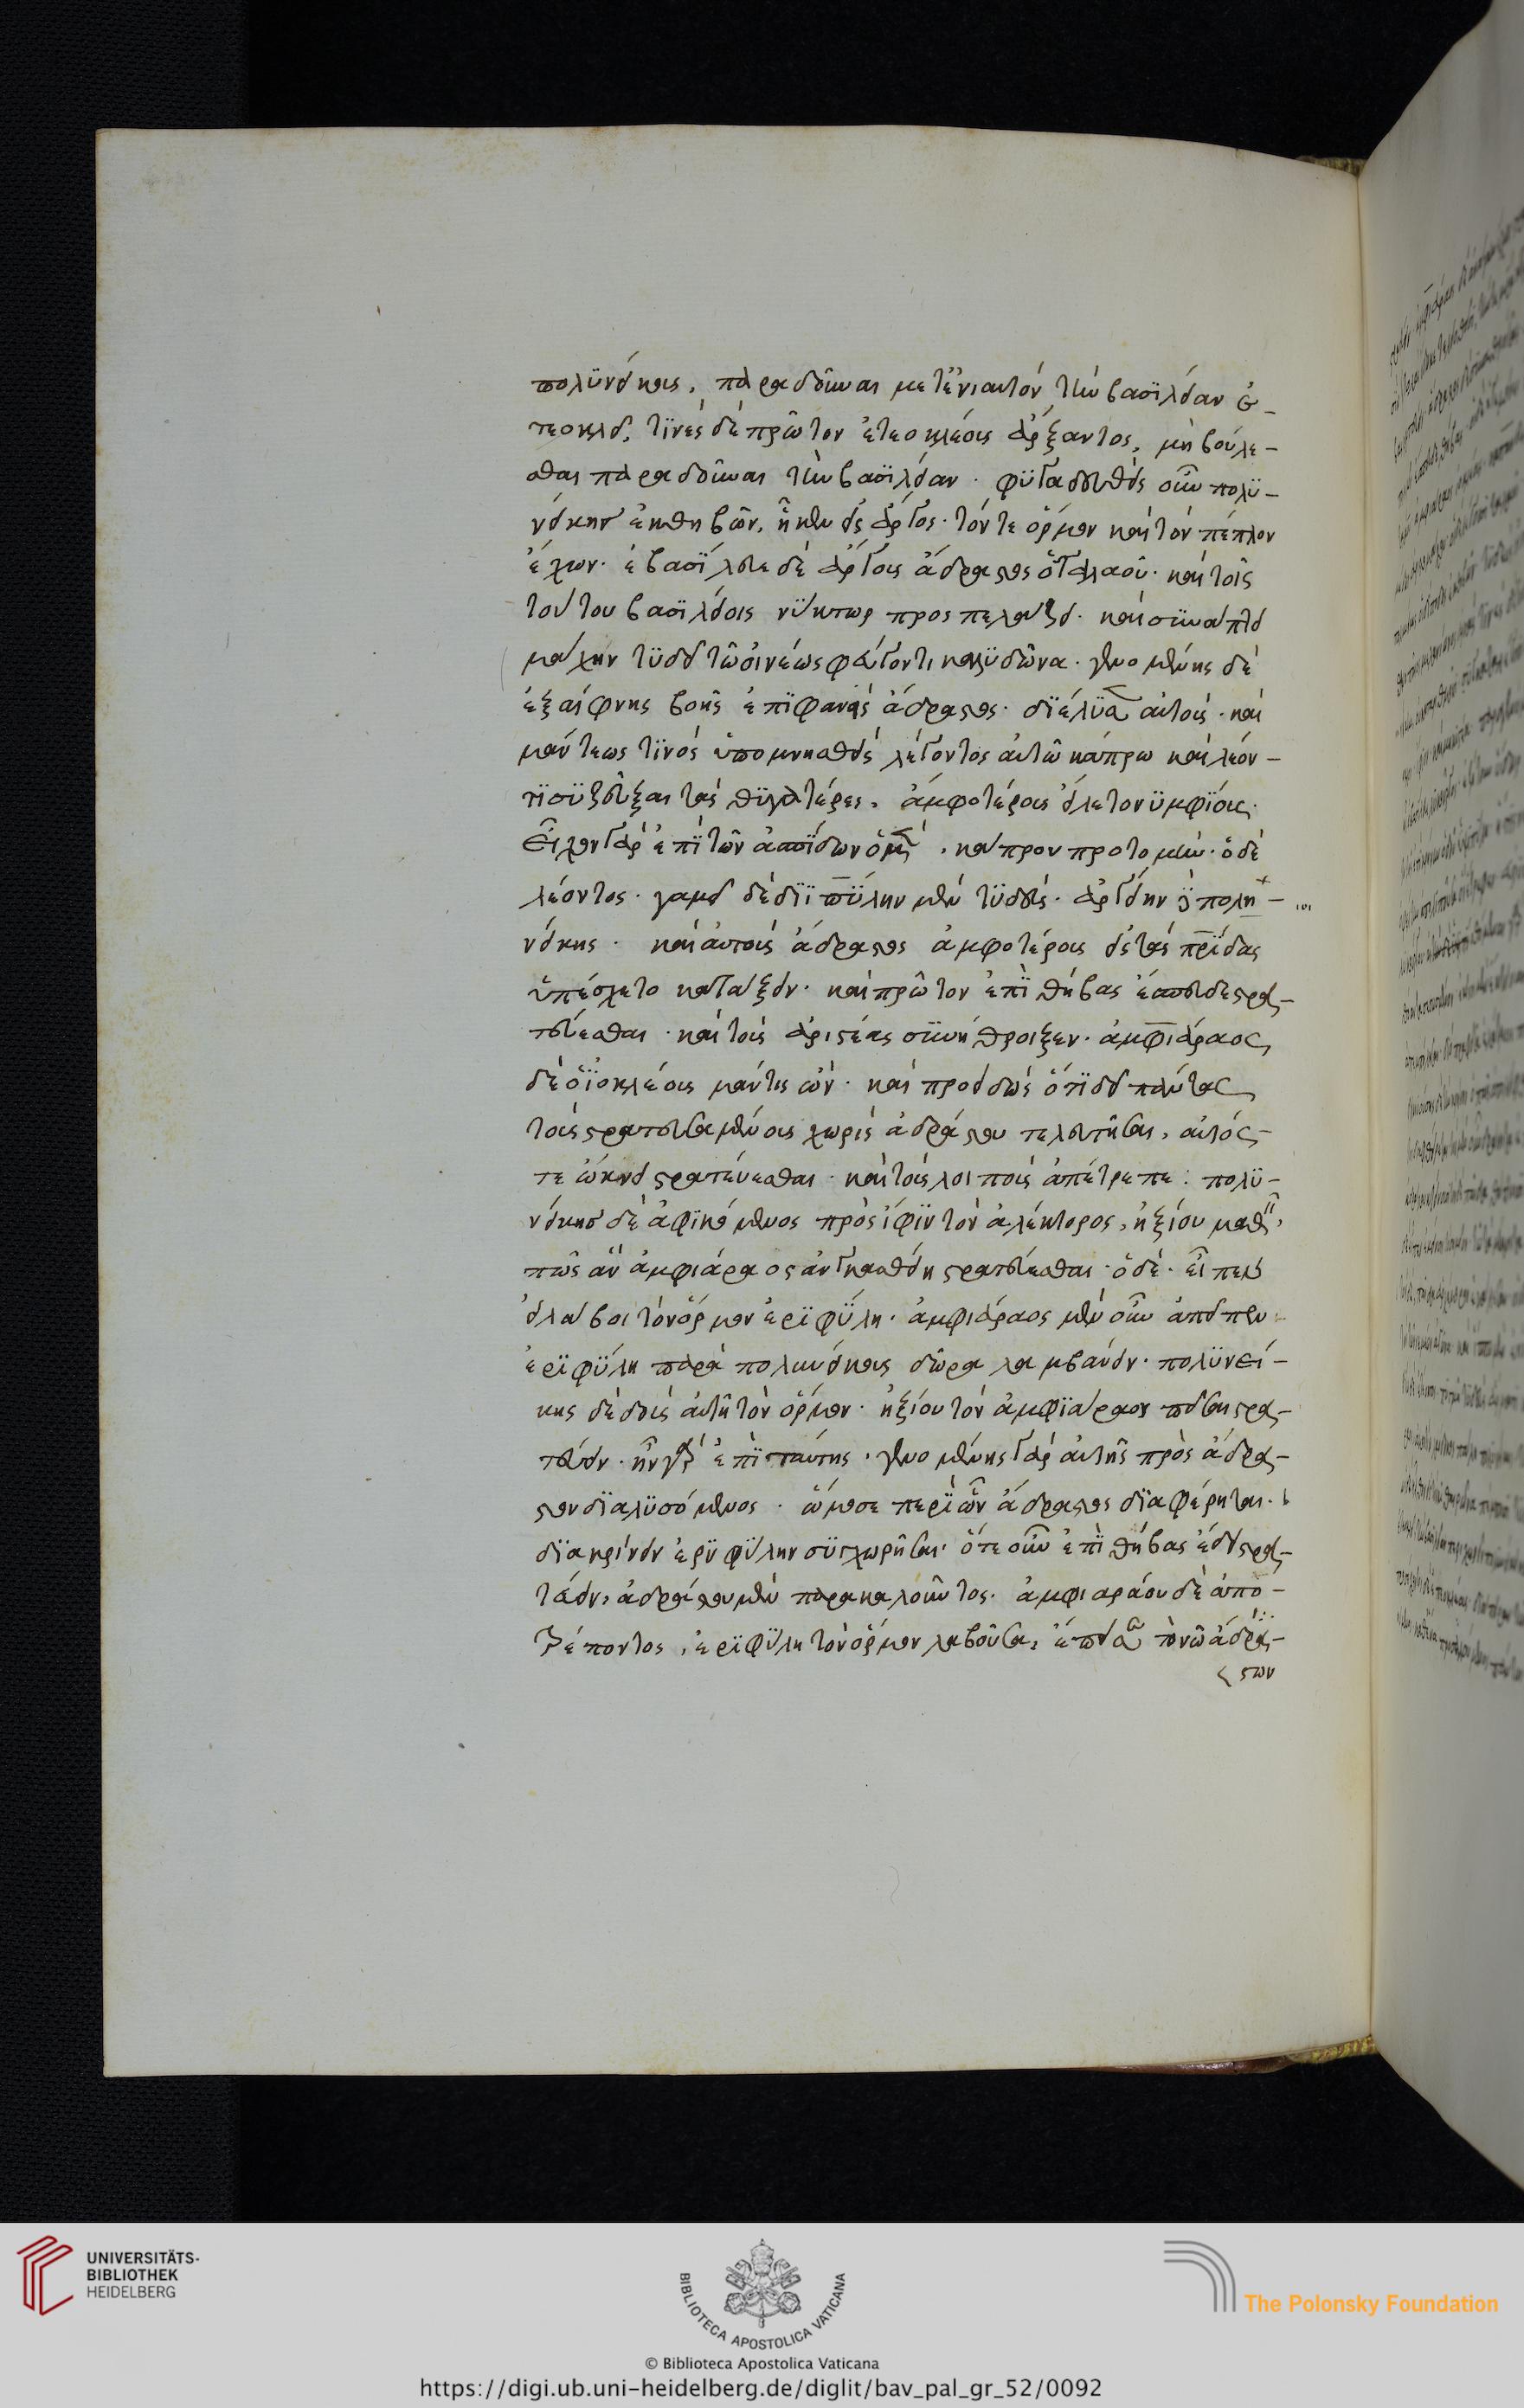 πολυνείκης, παραδοῦναι μετ' ἐνιαυτὸν τὴν βασϊλείαν ἐ-
τεοκλεῖ, τϊνὲς δὲ πρῶτον ἐτεοκλέους ἄρξαντος, μὴ βούλε-
σθαι παραδοῦναι τὴν βασϊλείαν. φϋγαδευθεὶς οὖν πολϋ-
νείκησ ἐκ θηβῶν, ἧκεν εἰς ἄργος. τόν τε ὅρμον καὶ τὸν πέπλον
ἔχων. ἐβασΐλευε δὲ ἄργους ἄδραστος ὁ ταλαοῦ. καὶ τοῖς
τούτου βασϊλείοις νΰκτωρ προσπελάζει. καὶ συνάπτει
μάχην τϋδεῖ τῶ οἰνέως φεύγοντι καλϋδῶνα. γενομένης δὲ
ἐξαίφνης βοῆς ἐπϊφανεὶς ἄδραστος. δϊέλϋσεν αὐτούς. καὶ
μάντεώς τϊνος ὑπομνησθεὶς λέγοντος αὐτῶ κάπρω καὶ λέον-
τϊ συζεῦξαι τὰς θϋγατέρας, ἀμφοτέρους εἵλετο νϋμφΐους.
εἶχον γὰρ ἐπὶ τῶν ἀσπΐδων ὁ μὲν, κάπρου προτομήν. ὁ δὲ
λέοντος. γαμεῖ δὲ δηϊπΰλην μὲν τϋδεύς. ἀργείην δὲ πολη-
νείκης. καὶ αὐτοὺς ἄδραστος ἀμφοτέρους εἰς τὰς πρΐδας
ὑπέσχετο κατάξειν. καὶ πρῶτον ἐπὶ θήβας ἔσπευδε στρα-
τεύεσθαι. καὶ τοὺς ἀριστέας συνήθροιξεν. ἀμφιάραος
δὲ ὁ ΐοκλέους μάντις ὤν. καὶ προειδὼς ὅτϊ δεῖ πάντας
τοὺς στρατευσαμένους χωρὶς ἀδράστου τελευτῆσαι, αὐτός
τε ὤκνει στρατεύεσθαι. καὶ τοὺς λοιποὺς ἀπέτρεπε: πολϋ-
νείκησ δὲ ἀφϊκόμενος πρὸς ἶφϊν τὸν ἀλέκτορος, ἠξίου μαθεῖν,
πῶς ἂν ἀμφιάραος ἀναγκασθείη στρατεύεσθαι. ὁ δὲ. εἶπεν
εἰ λάβοι τὸν ὅρμον ἐρϊφΰλη. ἀμφιάραος μὲν οὖν ἀπεῖπεν
ἐρϊφΰλη παρὰ πολυνείκους δῶρα λαμβάνειν. πολϋνεί-
κης δὲ δοὺς αὐτῆ τὸν ὅρμον. ἠξίου τὸν ἀμφϊάραον πεῖσαι στρα-
τεύειν. ἦν γὰρ ἐπϊ ταύτης. γενομένης γὰρ αὐτῆς πρὸς ἄδρα-
στον δϊαλϋσόμενος. ὤμοσε περὶ ὧν ἄδραστος δϊαφέρηται.
δϊακρίνειν ἐρϋφΰλην συγχωρῆσαι. ὅτε οὖν ἐπὶ θήβας ἔδει στρα-
τεύειν, ἀδράστου μὲν παρακαλοῦντος. ἀμφιαράου δὲ ἀπο-
τρέποντος, ἐρϊφΰλη τὸν ὅρμον λαβοῦσα, ἔπεισεν τὸν ὦ ἀδρά-
στων
UNIVERSITÄTS-
BIBLIOTHEK
HEIDELBERG
BIBLIOTECA APOSTOLICA VATICANA
© Biblioteca Apostolica Vaticana
The Polonsky Foundation
https://digi.ub.uni-heidelberg.de/diglit/bav_pal_gr_52/0092